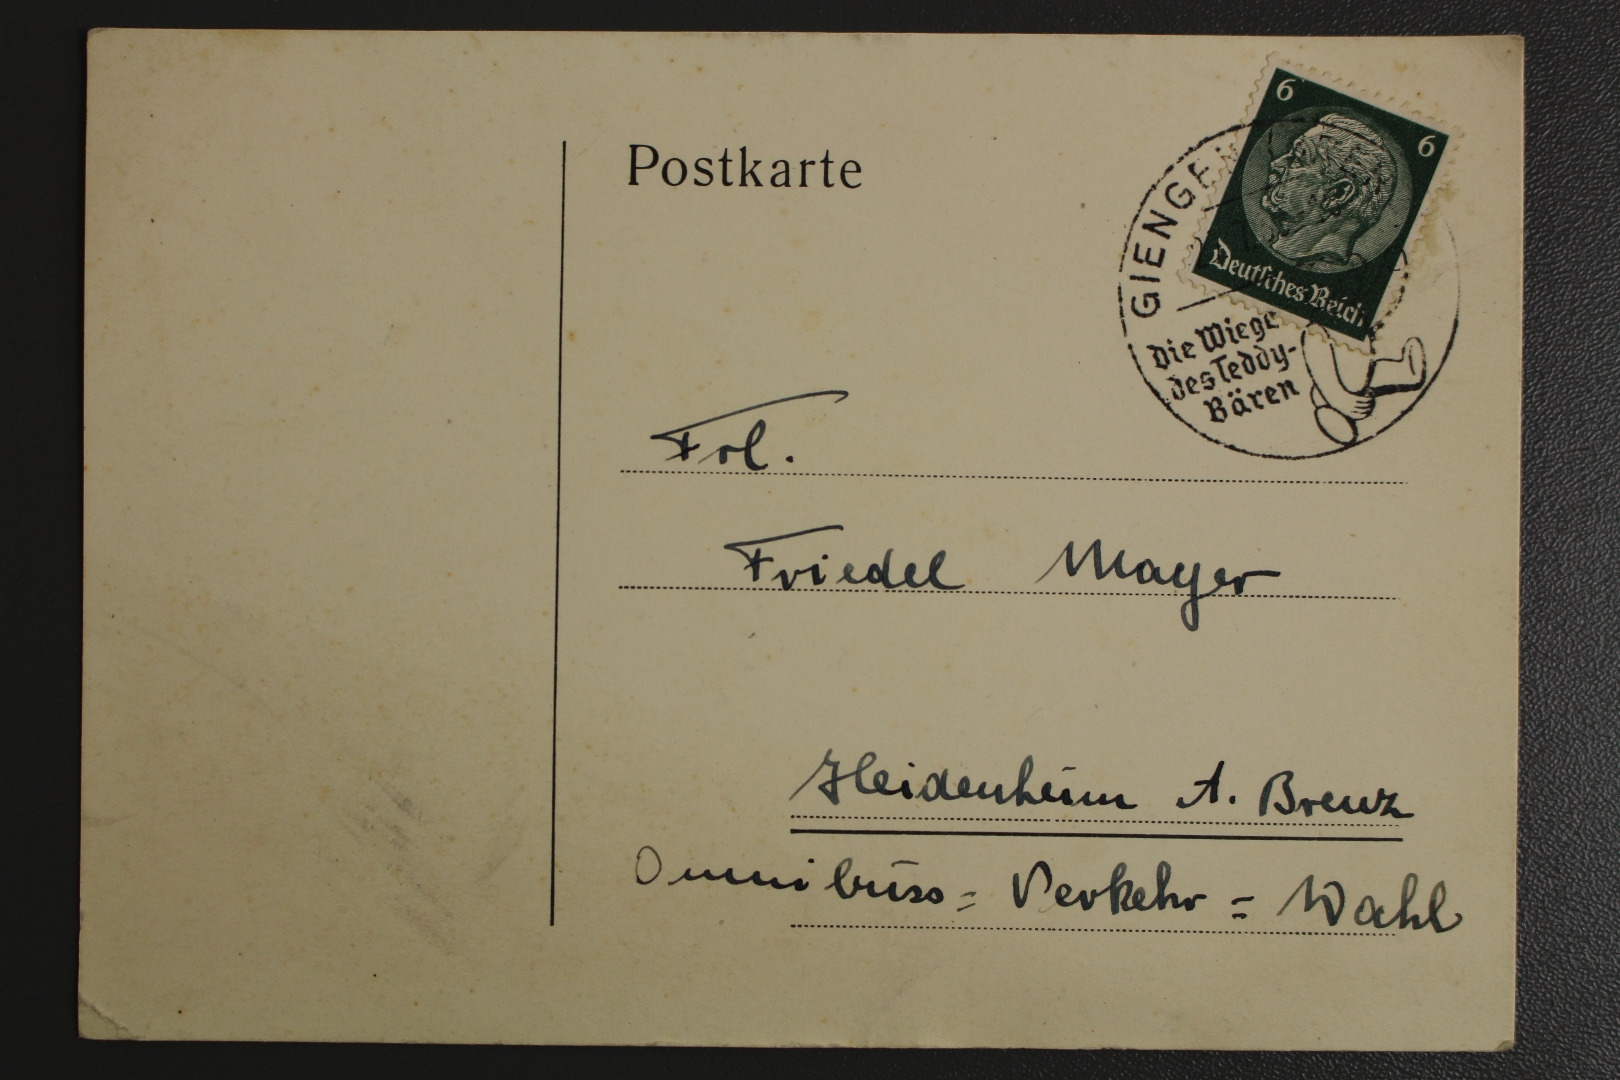 Postkarte
6
6
Deutsches Reich
GIENGEN
Die Wiege
des Teddy-
Bären
Frl.
Friedel Mayer
Heidenheim A. Brenz
Omnibuss = Verkehr = Wahl